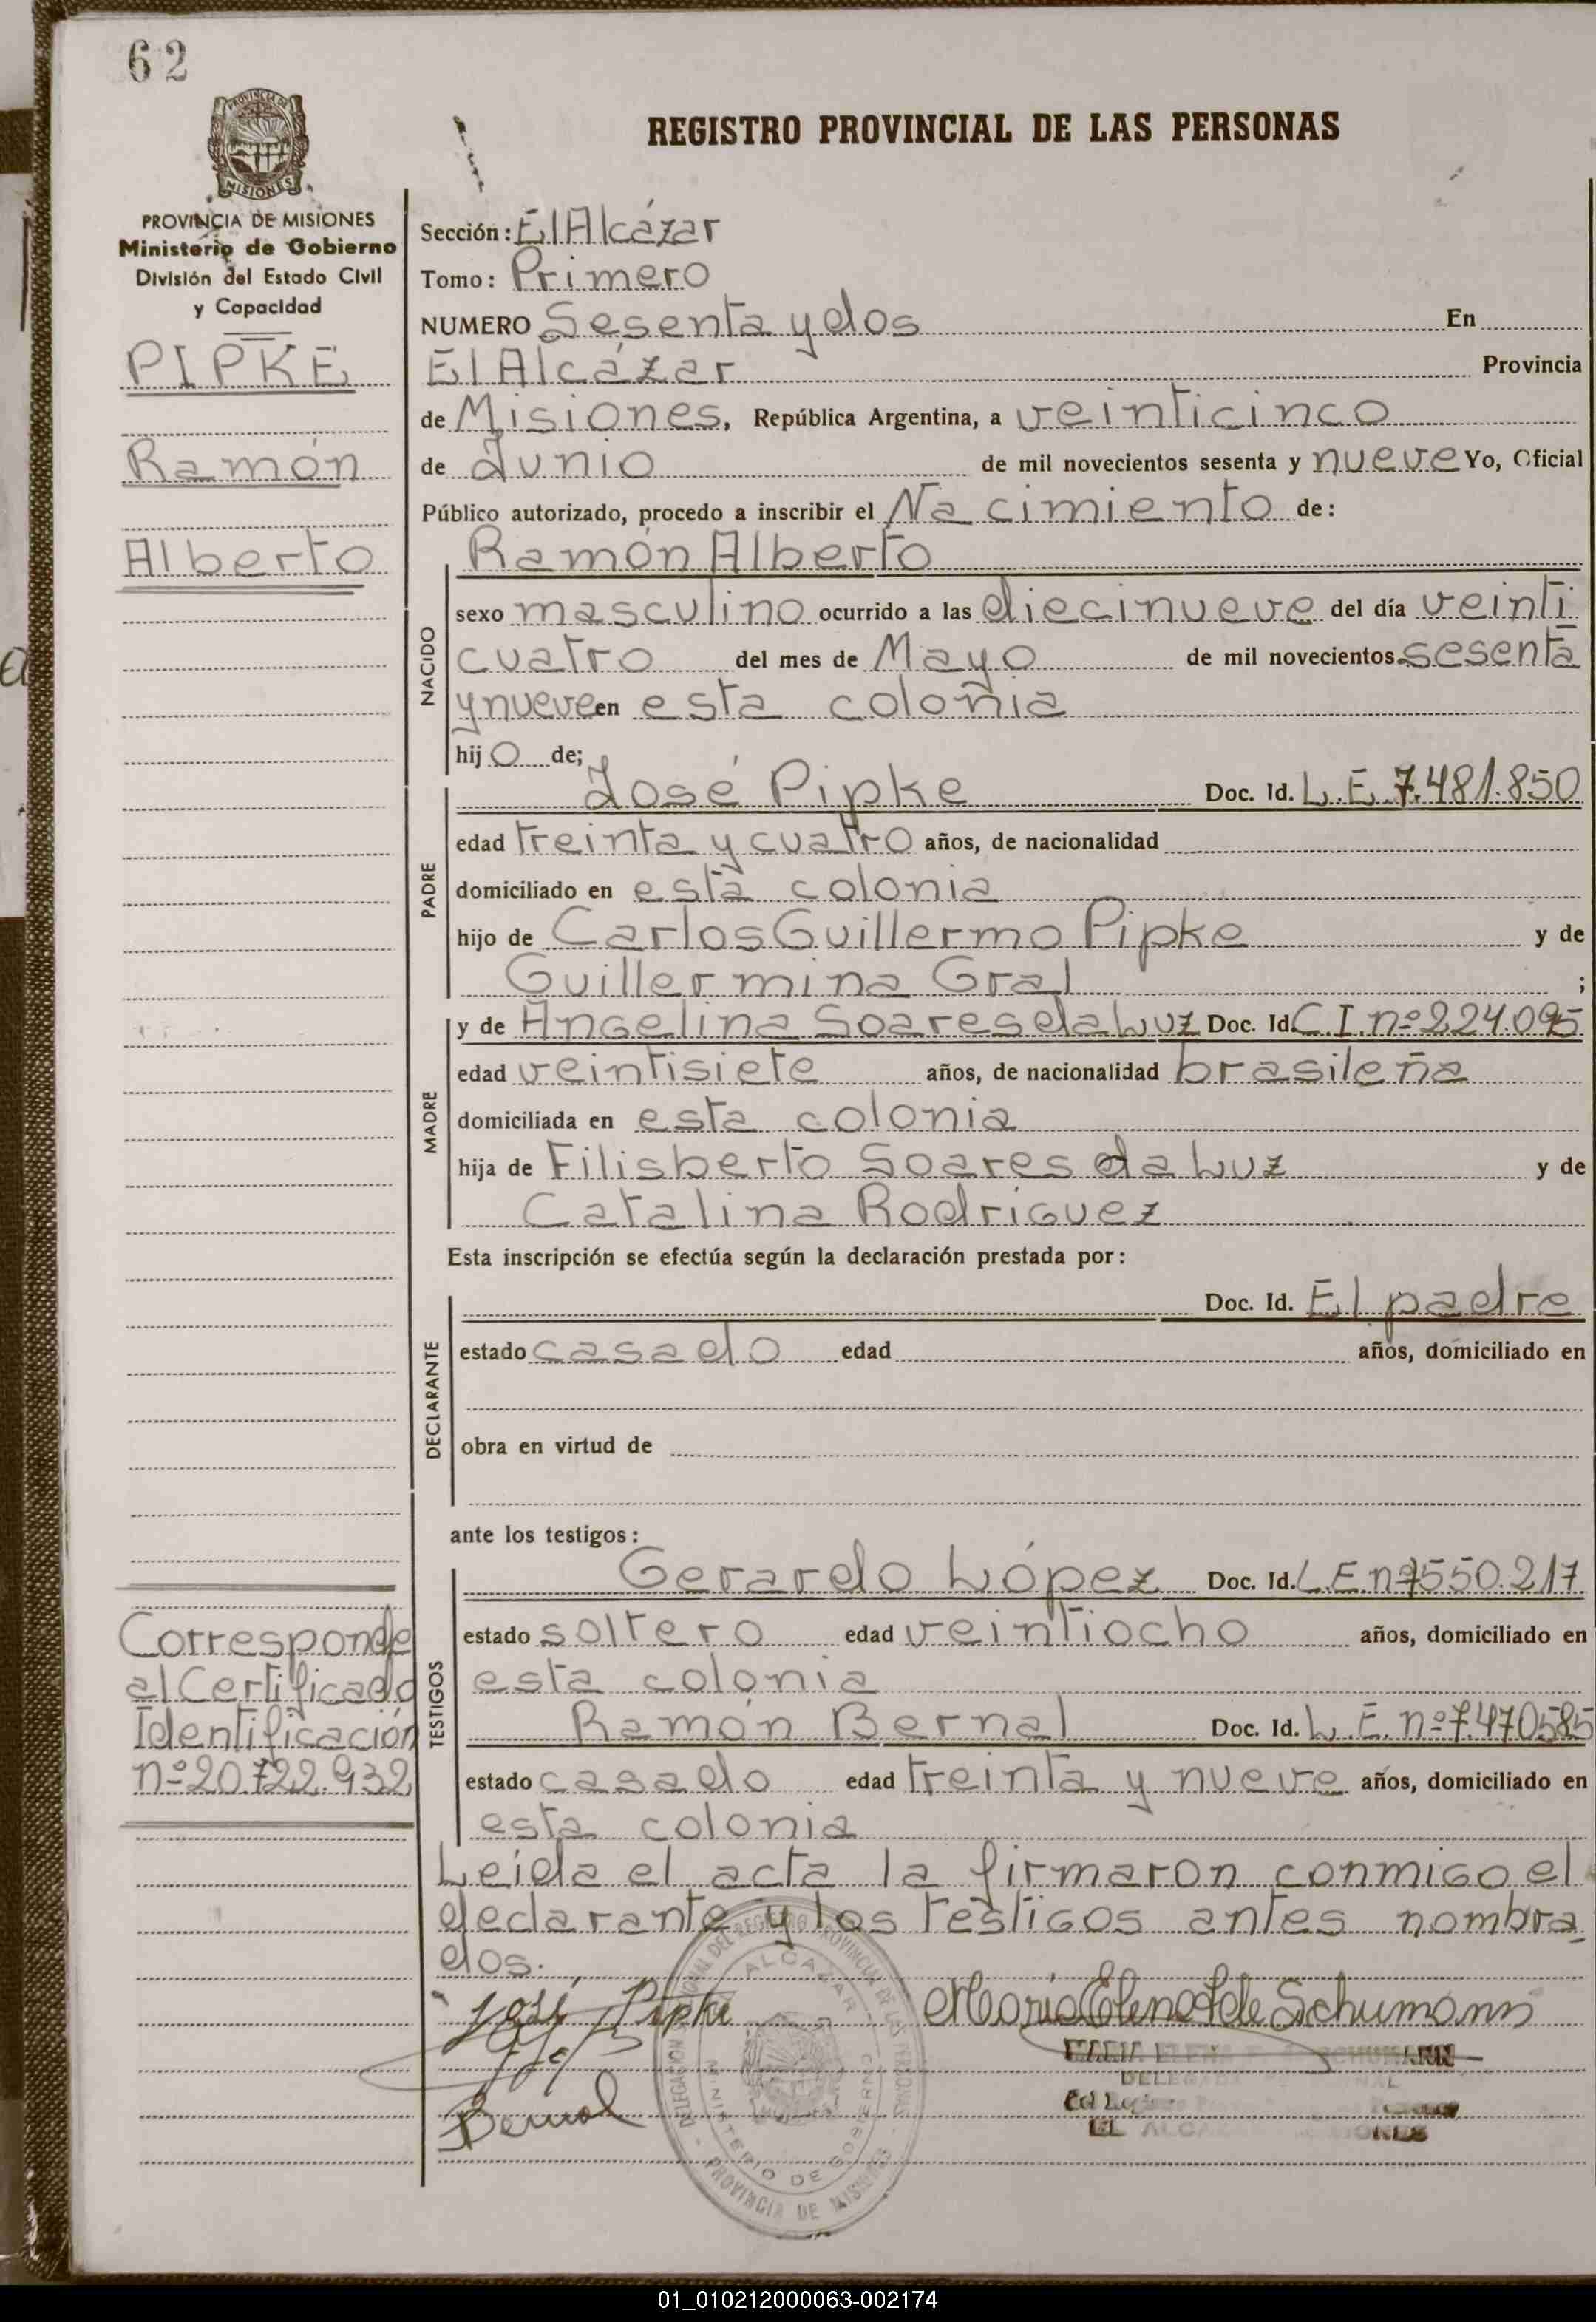 62
REGISTRO PROVINCIAL DE LAS PERSONAS
PROVINCIA DE MISIONES
Ministerio de Gobierno
División del Estado Civil
y Capacidad
PIPKE
Ramón
Alberto
Sección: El Alcázar
Tomo: Primero
NUMERO Sesenta y dos En
El Alcázar Provincia
de Misiones, República Argentina, a veinticinco
de Junio de mil novecientos sesenta y nueve Yo, Oficial
Público autorizado, procedo a inscribir el Nacimiento de:
Ramón Alberto
NACIDO
sexo masculino ocurrido a las diecinueve del día veinti
cuatro del mes de Mayo de mil novecientos sesenta
y nueve en esta colonia
hijo de;
PADRE
José Pipke Doc. Id. L.E. 7.481.850
edad treinta y cuatro años, de nacionalidad
domiciliado en esta colonia
hijo de Carlos Guillermo Pipke y de
Guillermina Gral ;
MADRE
y de Angelina Soares da Luz Doc. Id. C.I. nº 224.095
edad veintisiete años, de nacionalidad brasileña
domiciliada en esta colonia
hija de Filisberto Soares da Luz y de
Catalina Rodríguez
Esta inscripción se efectúa según la declaración prestada por:
DECLARANTE
Doc. Id. El padre
estado casado edad años, domiciliado en
obra en virtud de
ante los testigos:
TESTIGOS
Gerardo López Doc. Id. L.E. nº 7550.217
estado soltero edad veintiocho años, domiciliado en
esta colonia
Ramón Bernal Doc. Id. L.E. nº 7.470585
estado casado edad treinta y nueve años, domiciliado en
esta colonia
Corresponde
al Certificado
Identificación
nº 20.722.932
Leída el acta la firmaron conmigo el
declarante y los testigos antes nombra
dos.
José Pipke
Bernal
María Elena F de Schumann
MARIA ELENA F. SCHUMANN
EL ALCAZAR
DELEGACION DEL REGISTRO PROVINCIAL DE LAS PERSONAS
ALCAZAR
MINISTERIO DE GOBIERNO
PROVINCIA DE MISIONES
01_010212000063-002174